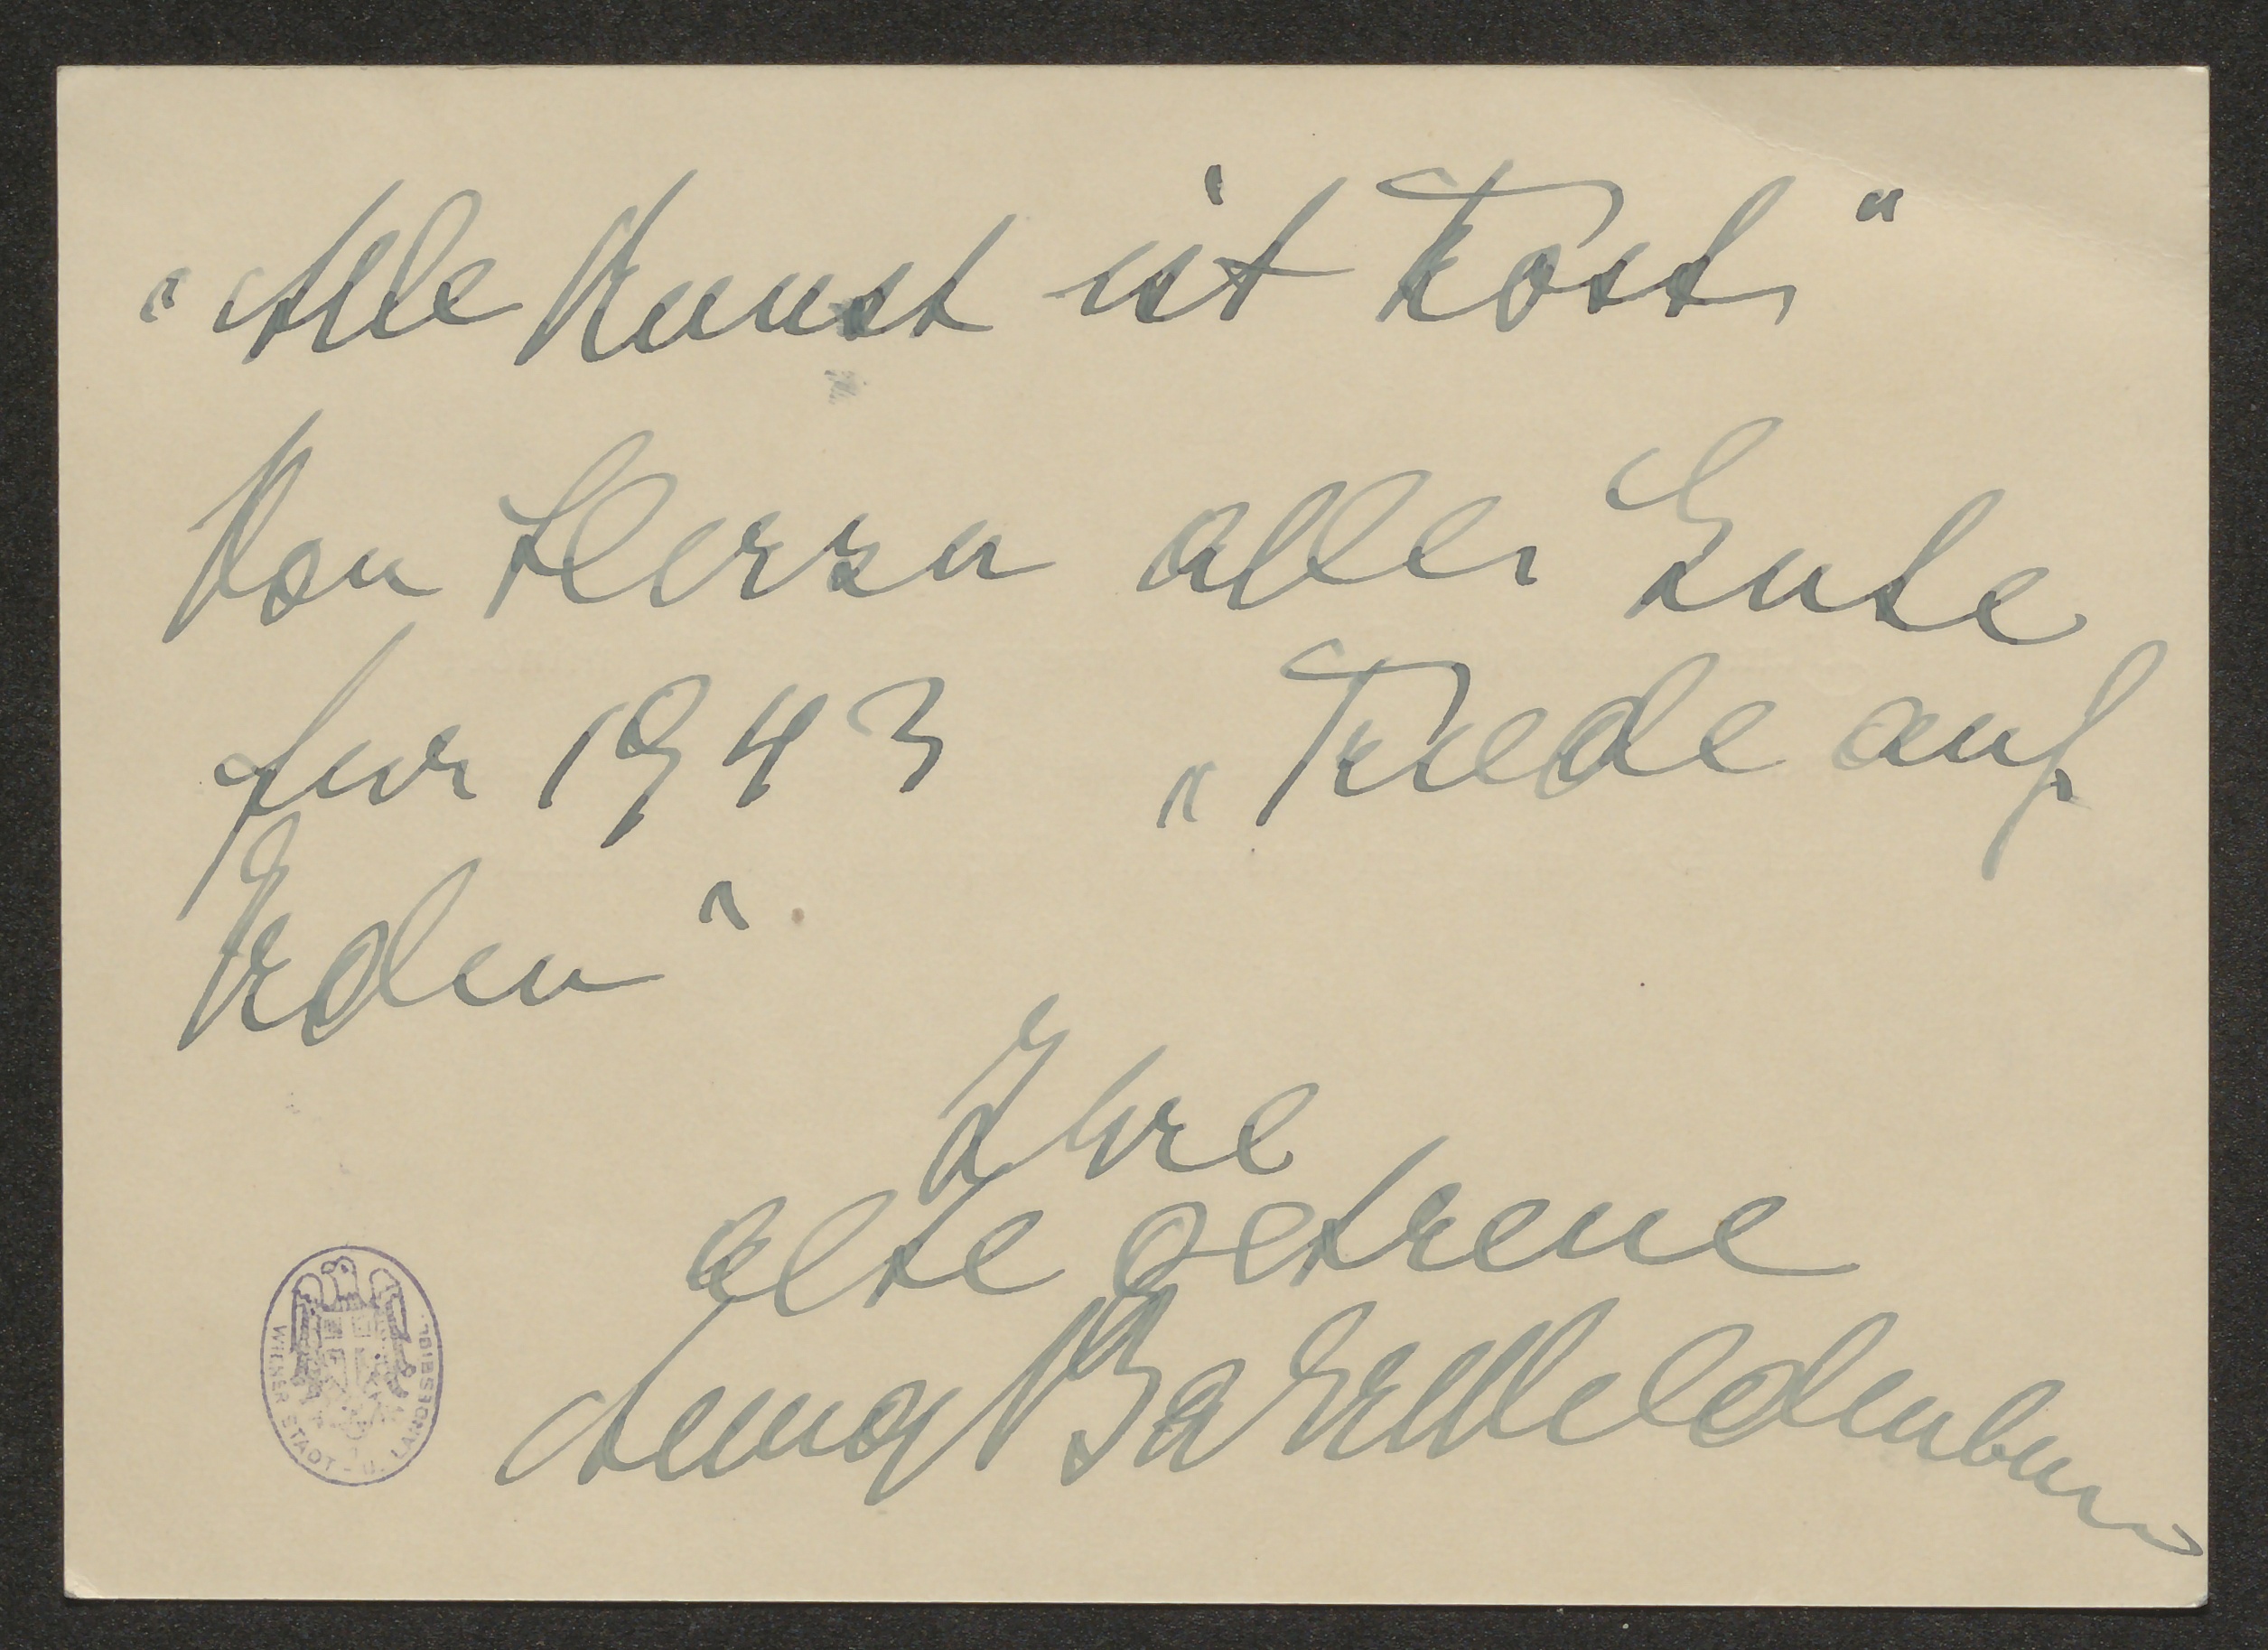 "Alle Kunst ist Trost"
Von Herzen alles Gute
für 1943 „Friede auf
Erden"
Ihre
alte getreue
Anna Bahr Mildenburg
WIENER STADT - U. LANDESBIBL.